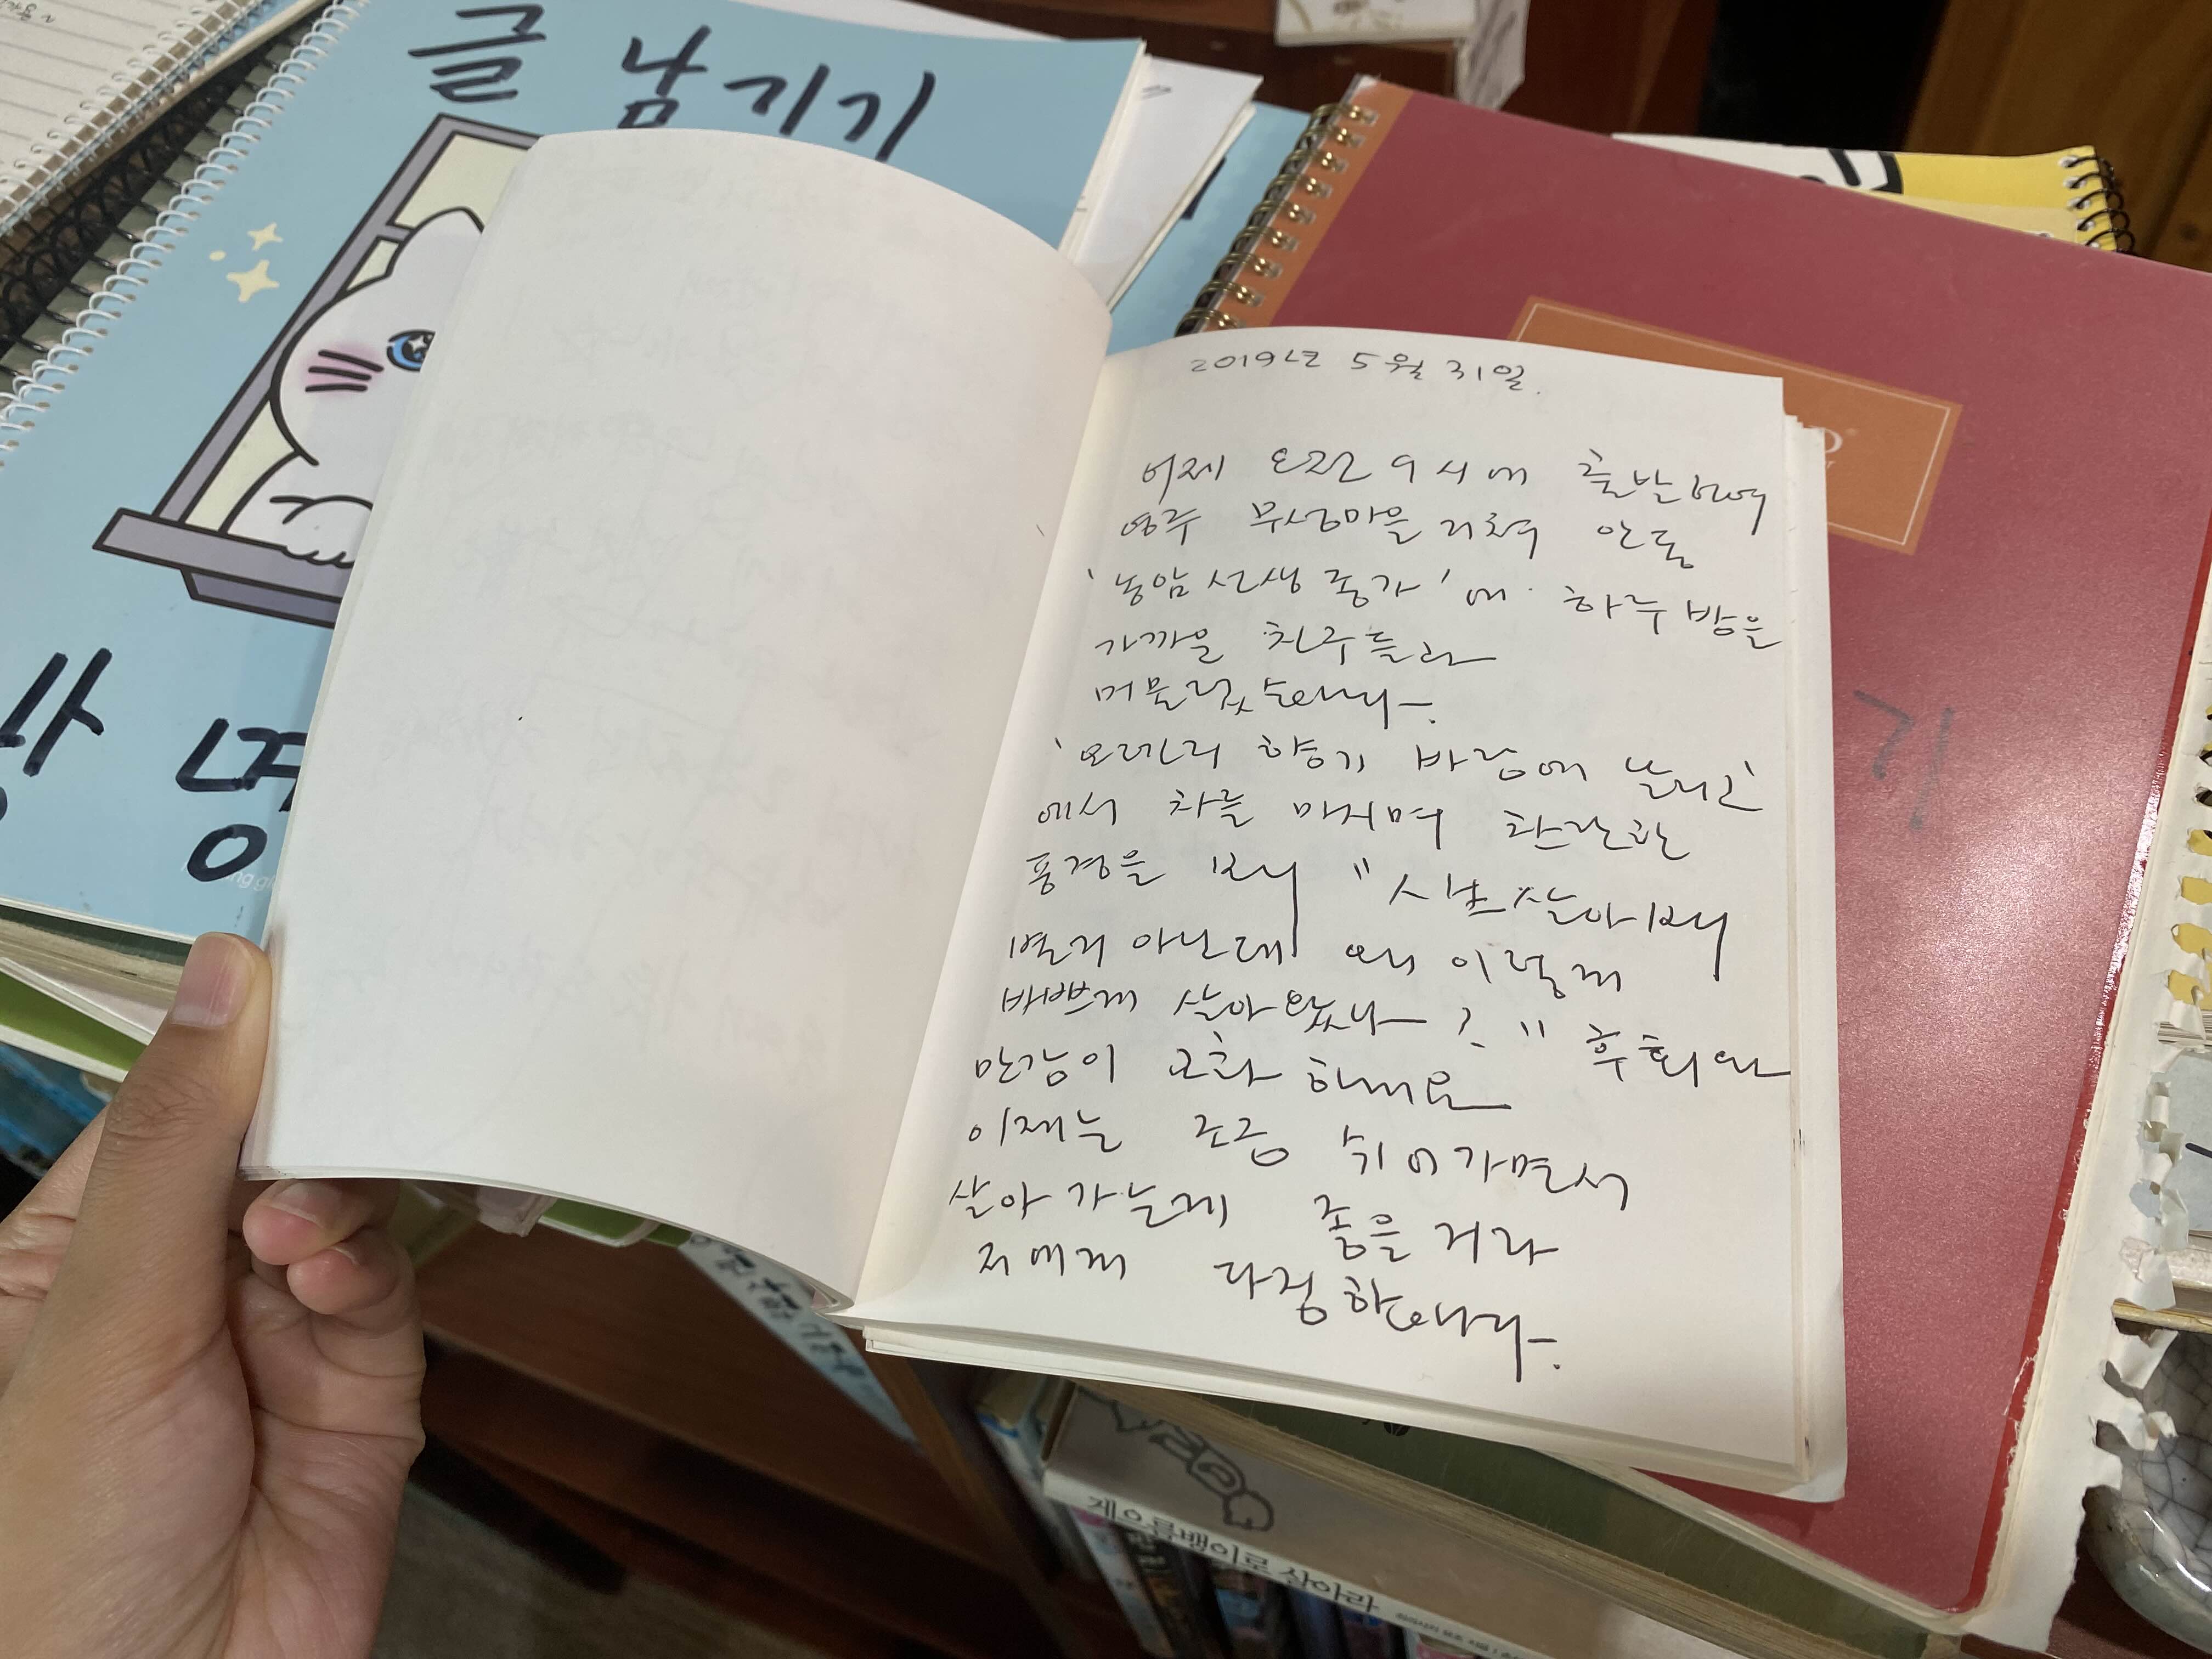 글 남기기
2019년 5월 31일.
어제 오전 9시에 출발하여
영주 무섬마을 거쳐 안동
'농암선생 종가'에 하루밤을
가까운 친구들과
머물렀습니다.
'오렌지 향기 바람에 날리고'
에서 차를 마시며 찬란한
풍경을 보니 "시보살아보니
별거 아닌데 왜 이렇게
바쁘게 살아왔나?" 후회와
만감이 교차 하네요
이제는 조금 쉬어가면서
살아 가는게 좋을거라
저에게 다정합니다.
기
게으름뱅이로 살아라